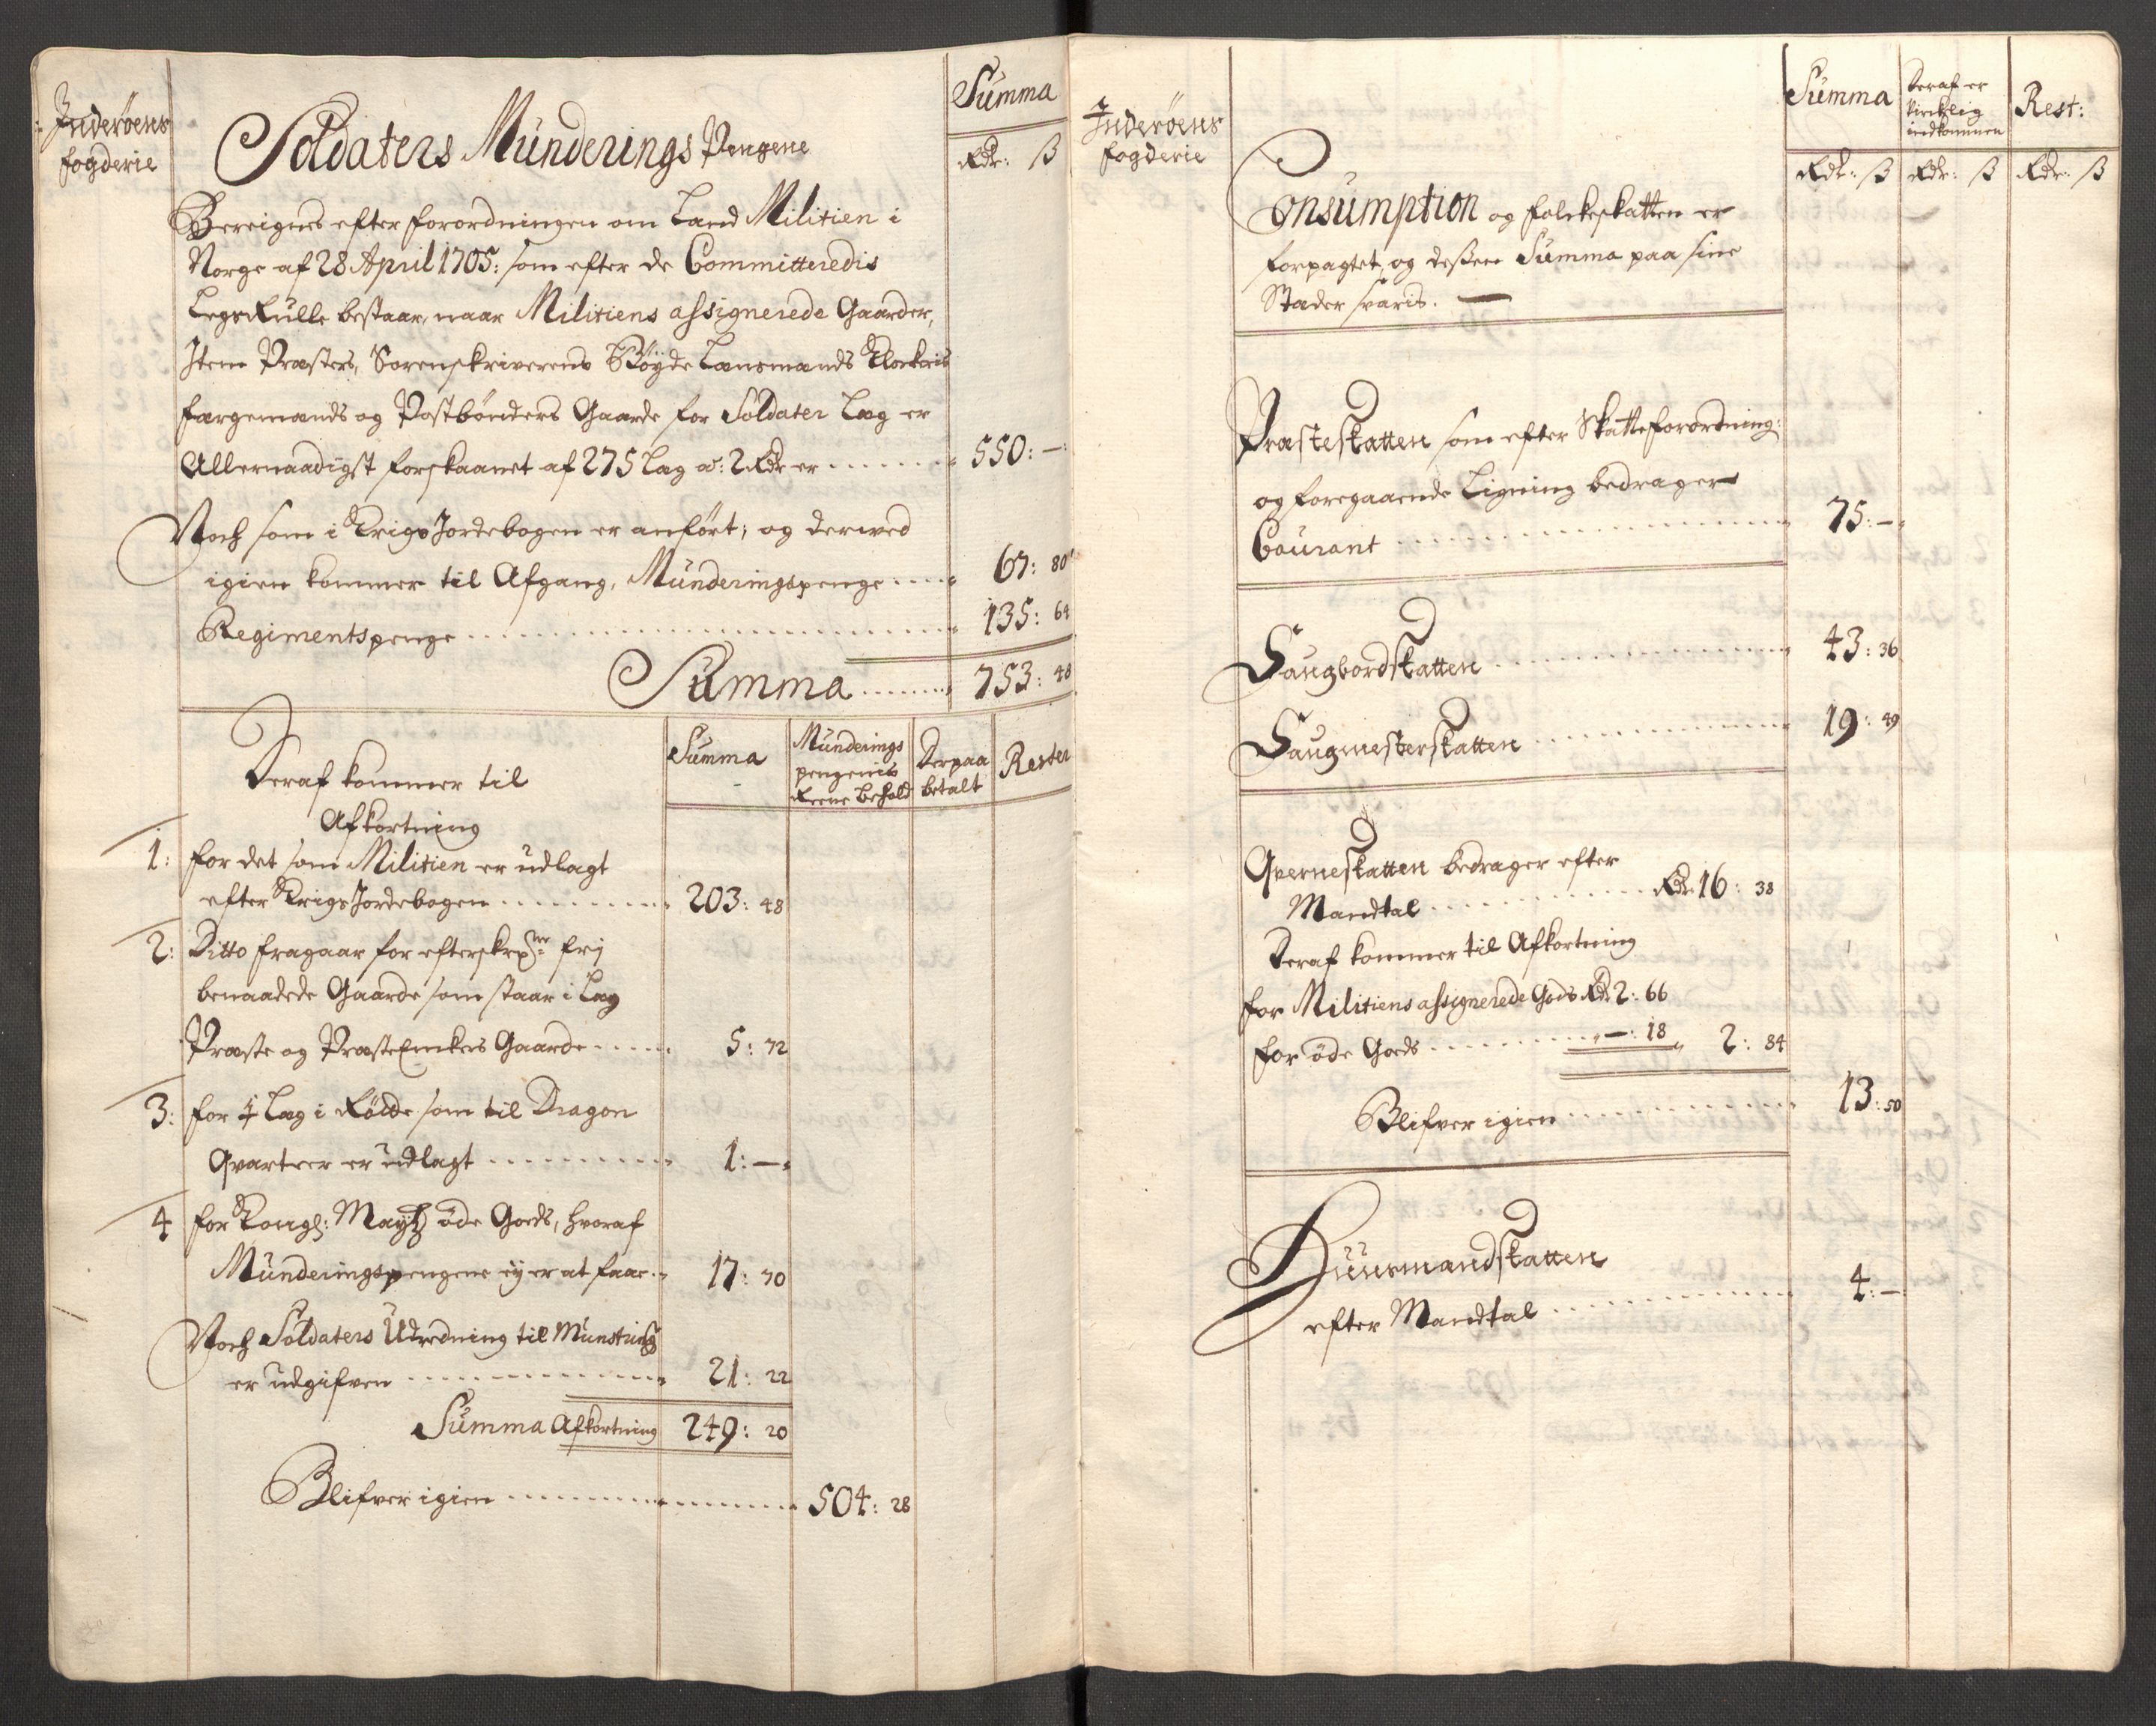 Inderöens
fogderie
Summa
Soldaters Münderings Pengene
Rdr: ß
Bereignes efter forordningen om Land Militien i
Norge af 28 April 1705: som efter de Committeredis
LegsRulle bestaar, naar Militiens assignerede Gaarder,
Item Præsters, Sorenskriverens Bøyde Lansmands Klockeris
færgemands og Postbønders Gaarde for Soldater Læg er
Allernaadigst forskaanet af 275 Læg a: 2 Rdr er 550: —:
Noch som i KrigsJordebogen er anført; og derved
igien kommer til Afgang, Münderingspenge 67: 80
Regimentspenge 135: 64
Summa 753: 48
Deraf kommer til
Afkortning
Summa
Münderings
pengenis
Reene Behold
Derpaa
betalt
Rester
1: for det som Militien er udlagt
efter KrigsJordebogen 203: 48
2: Ditto fragaar for efterskrefne frj
benaadede Gaarde som staar i Læg
Præste og PræsteEnkers Gaarde 5: 72
3: for ½ Læg i Rølde som til Dragon
Qvarteer er udlagt 1: —:
4 for Kongl: Mayts øde Goeds, hvoraf
Münderingspengene ey er at faae 17: 70
Noch Soldaters Udredning til Münstrings
er udgifven 21: 22
Summa Afkortning 249: 20
Blifver igien 504: 28
Inderöens
fogderie
Summa
Deraf er
virkelig
indkommen
Rest:
Rdr: ß Rdr: ß Rdr: ß
Consumption og folckeskatten er
forpagtet, og dessen Summa paa sine
Stæder svaris. —
Præsteskatten som efter Skatteforordning:
og foregaaende Ligning bedrager
Courant 75: —
Saugbordskatten 43: 36
Saugmesterskatten 19: 49
Qverneskatten bedrager efter
Mandtal Rdr 16: 38
Deraf kommer til Afkortning
for Militiens assignerede Gods Rdr 2: 66
for øde Goeds —: 18 2: 84
Blifver igien 13: 50
Huusmandskatten
efter Mandtal 4: —